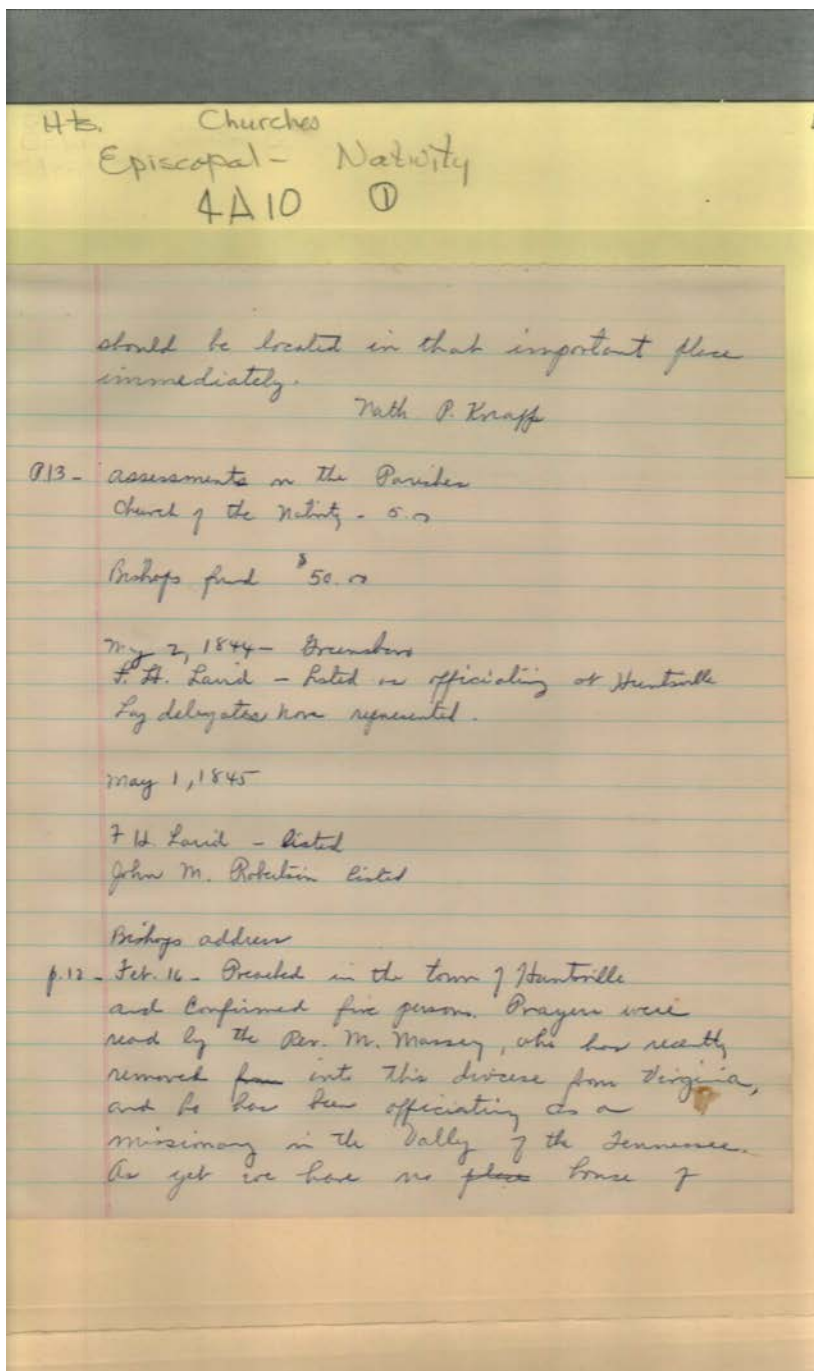 Hts. Churches
Episcopal - Nativity
4A10 ①
should be located in that important place
immediately.
Nath P. Knapp
P13 - assessments on the Parishes
Church of the Nativity - 5.00
Bishops fund $50.00
May 2, 1844 - Greensboro
F. H. Laird - Listed as officiating at Huntsville
Lay delegates none represented.
May 1, 1845
F H. Laird - listed
John M. Robertson listed
Bishops address
p.12 - Feb. 16 - Preached in the town of Huntsville
and Confirmed five persons. Prayers were
read by the Rev. M. Massey, who has recently
removed from into this diocese from Virginia,
and he has been officiating as a
missionary in the Vally of the Tennessee.
As yet we have no place house of